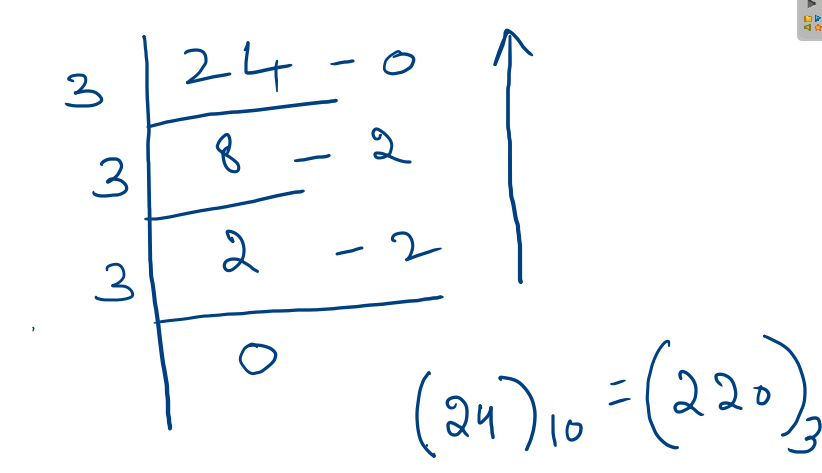 3 24 - 0
3 8 - 2
3 2 - 2
0
(24)10 = (220)3